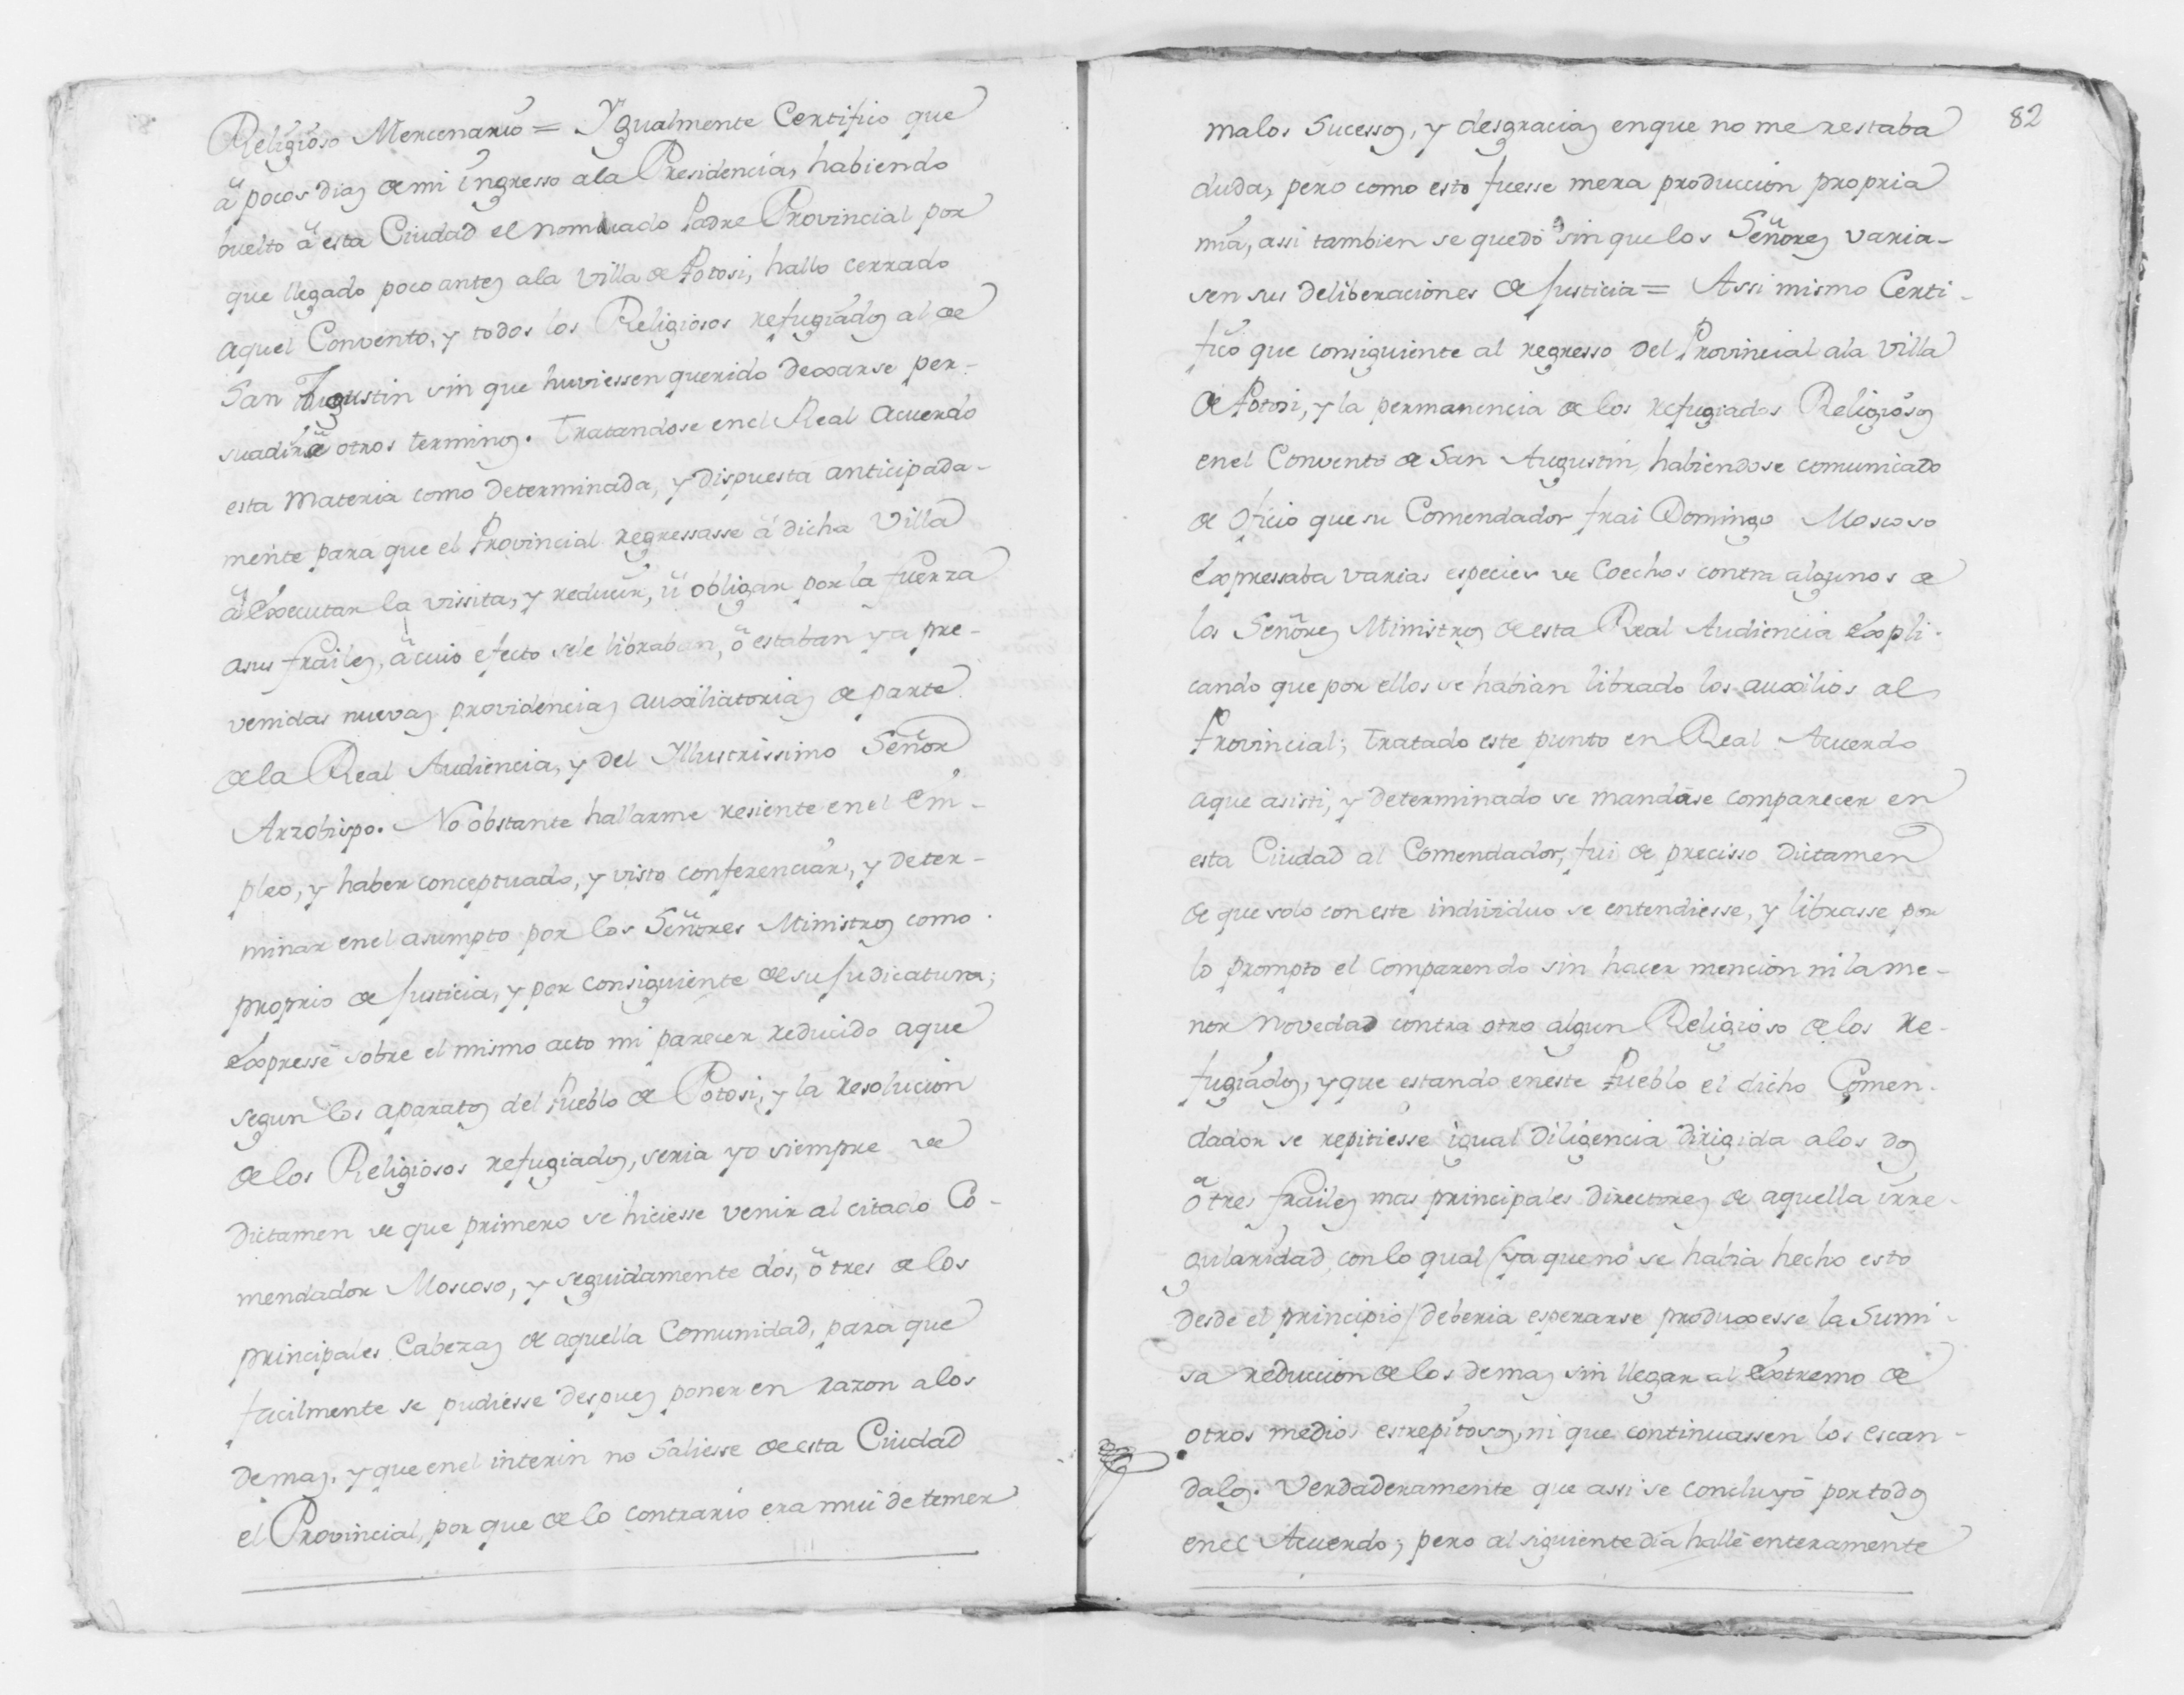 Religioso Mercenario = Ygualmente Certifico que
â pocos dias de mi ingresso ala Presidencia, habiendo
buelto â esta Ciudad el nominado Padre Provincial por
que llegado poco antes ala Villa de Potosi, hallo cerrado
aquel Convento, y todos los Religiosos refugiados al de
San Augustin sin que huviessen querido dexarse per-
suadir â otros terminos. Tratandose enel Real Acuerdo
esta materia como determinada, y dispuesta anticipada-
mente para que el Provincial regressasse â dicha Villa
â Executar la vissita, y reducir, û obligar por la fuerza
asus frailes, â cuio efecto sele libraban, ô estaban ya pre-
venidas nuevas providencias auxiliatorias de parte
dela Real Audiencia, y del Yllustrissimo Señor
Arzobispo. No obstante hallarme resiente enel Em-
pleo, y haber conceptuado, y visto conferenciar, y deter-
minar enel asumpto por los Señores Ministros como
proprio de Justicia, y por consiguiente de su Judicatura;
Expressê sobre el mismo acto mi parecer reducido aque
segun los aparatos del Pueblo de Potosi, y la resolucion
delos Religiosos refugiados, seria yo siempre de
Dictamen de que primero se hiciesse venir al citado Co-
mendador Moscoso, y seguidamente dos, ô tres delos
principales Cabezas de aquella Comunidad, para que
facilmente se pudiesse despues poner en razon alos
demas. y que enel interin no saliesse de esta Ciudad
el Provincial, por que delo contrario era mui de temer
82
malos Sucessos, y desgracias enque no me restaba
duda, pero como esto fuesse mera produccion propria
mia, assi tambien se quedô sin que los Señores varia-
sen sus deliberaciones de Justicia = Assi mismo Certi-
fico que consiguiente al regresso del Provincial ala Villa
de Potosi, y la permanencia delos refugiados Religiosos
enel Convento de San Augustin, habiendose comunicado
de Oficio que su Comendador frai Domingo Moscoso
Expressaba varias especies de Coechos contra algunos de
los Señores Ministros de esta Real Audiencia Expli-
cando que por ellos se habian librado los auxilios al
Provincial; tratado este punto en Real Acuerdo
aque asisti, y determinado se mandase comparecer en
esta Ciudad al Comendador, fui de precisso Dictamen
de que solo con este individuo se entendiesse, y librasse por
lo prompto el Comparendo sin hacer mencion ni la me-
nor novedad contra otro algun Religioso delos Re-
fugiados, y que estando en este Pueblo el dicho Comen-
dador se repitiesse igual Diligencia dirigida alos dos
ô tres frailes mas principales Directores de aquella irre-
gularidad, con lo qual (ya que no se habia hecho esto
desde el principio) deberia esperarse produxesse la Sumi-
sa reduccion delos demas sin llegar al Extremo de
otros medios estrepitosos, ni que continuassen los escan-
dalos. Verdaderamente que assi se concluyô por todos
enel Acuerdo; pero al siguiente dia hallê enteramente